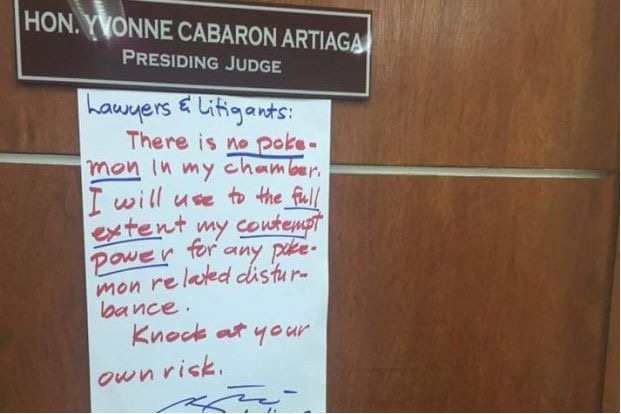 HON. YVONNE CABARON ARTIAGA
PRESIDING JUDGE
Lawyers & Litigants:
There is no poke-
mon in my chamber.
I will use to the full
extent my contempt
power for any poke-
mon related distur-
bance.
Knock at your
own risk.